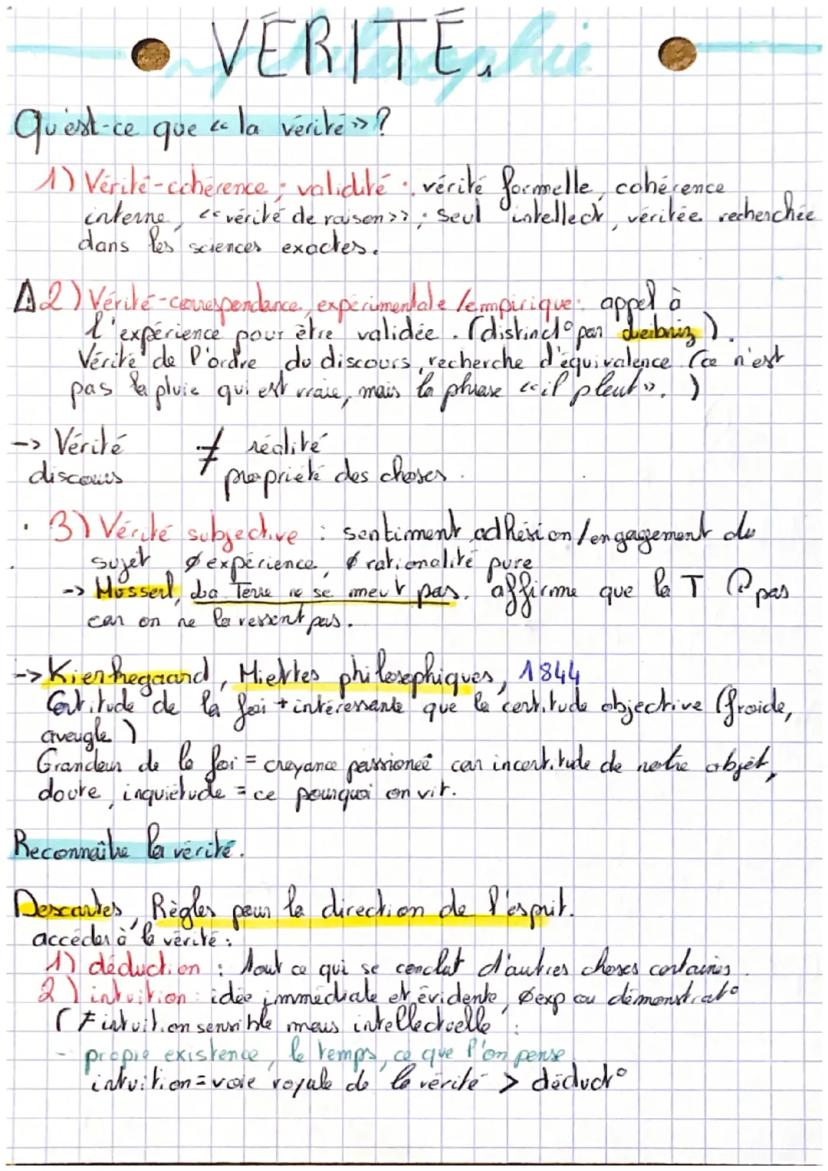 philosophie
VÉRITÉ.
Qu'est-ce que « la vérité » ?
1) Vérité-cohérence ; validité : vérité formelle, cohérence
interne, « vérité de raison » ; seul intellect, véritée recherchée
dans les sciences exactes.
2) Vérité-correspendance, expérimentale / empirique : appel à
l'expérience pour être validée. (distinct° par Leibniz).
Vérité de l'ordre du discours, recherche d'équivalence (ce n'est
pas la pluie qui est vraie, mais la phrase « il pleut ». )
-> Vérité ≠ réalité
discours propriété des choses.
3) Vérité subjective : sentiment, adhésion/engagement du
sujet Ø expérience, Ø rationalité pure
-> Husserl, La Terre ne se meut pas. affirme que la T pas
car on ne la ressent pas.
-> Kierkegaard, Miettes philosophiques, 1844
Certitude de la foi + intéressante que la certitude objective (froide,
aveugle)
Grandeur de la foi = croyance passionée car incertitude de notre objet,
doute, inquiétude = ce pourquoi on vit.
Reconnaître la vérité.
Descartes, Règles pour la direction de l'esprit.
accéder à la vérité :
1) déduction : tout ce qui se conclut d'autres choses certaines.
2) intuition : idée immédiate et évidente, Ø exp ou démonstrat°
(≠ intuition sensible mais intellectuelle :
- propre existence, le temps, ce que l'on pense
intuition = voie royale de la vérité > déduct°